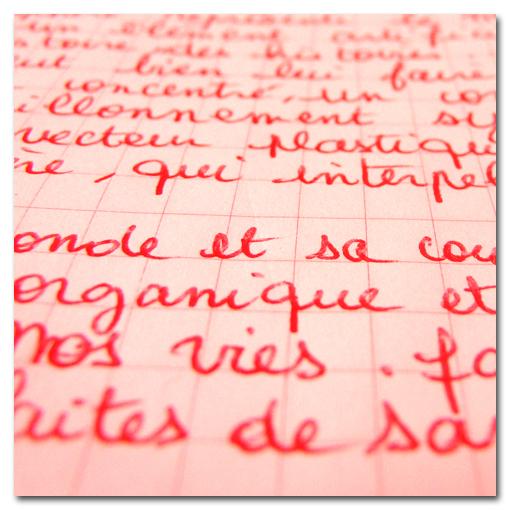 un élément
toire des
bien lui faire
concentré, un co
illonnement sy
vecteur plastiqu
ère, qui interpel
onde et sa cou
organique et
nos vies. fa
faites de sa